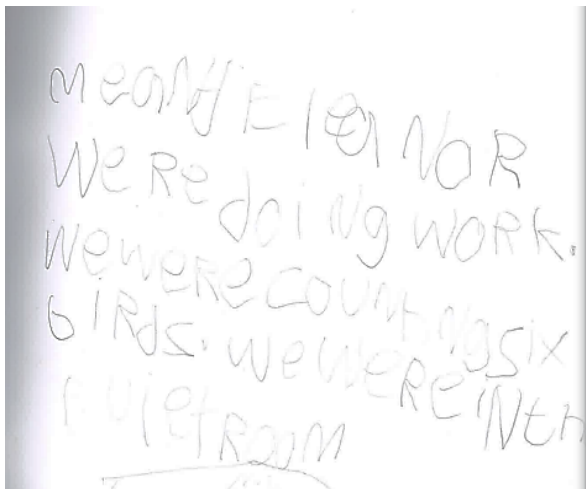 Me and Eleanor
were doing work.
We were counting six
birds. We were in th
quiet Room